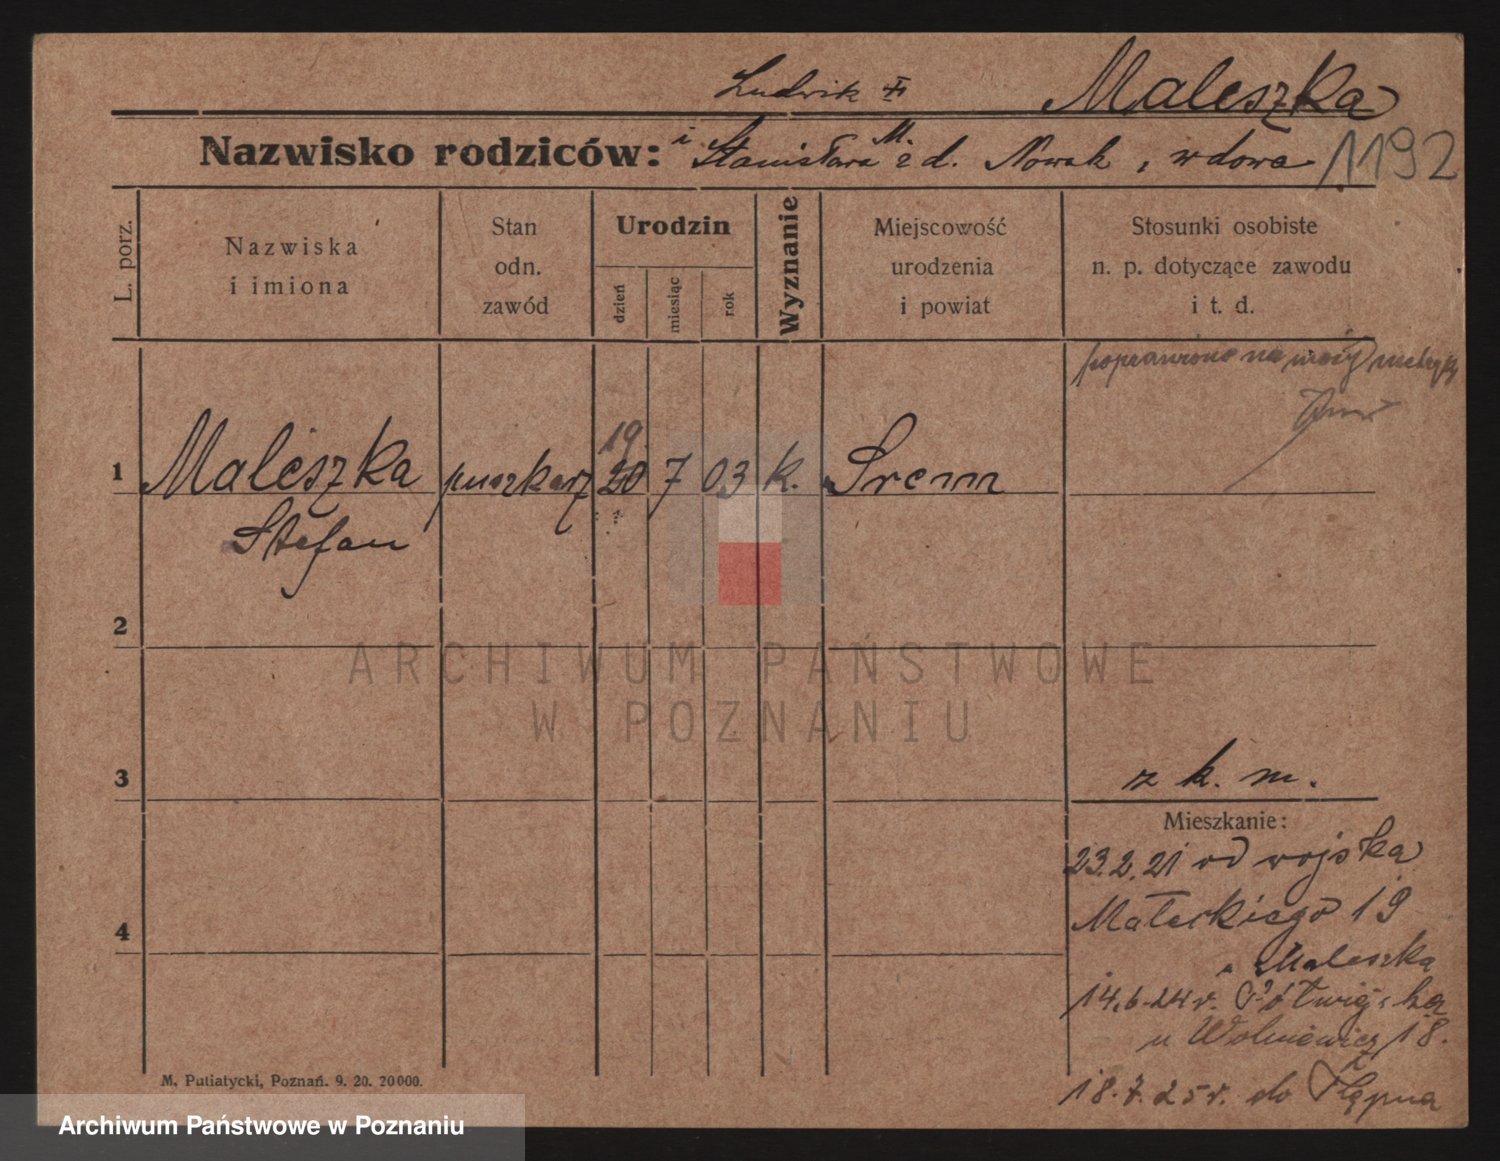 Ludwik Maleszka
Nazwisko rodziców: i Stanisława M. z d. Nowak, wdowa 1192
L. porz.
Nazwiska i imiona
Stan odn. zawód
Urodzin
dzień
miesiąc
rok
Wyznanie
Miejscowość urodzenia i powiat
Stosunki osobiste n. p. dotyczące zawodu i t. d.
poprawiono na mocy metryki
19.
1 Maleszka puszkarz 20 7 03 k. Srem
Stefan
2
3
z k. m.
Mieszkanie:
23.2.21 od wojska
4
Małeckiego 19
u Maleszka
14.6.24 r. Półwiejska
u Wolniewicz 18.
18.7.25 r. do
M. Putiatycki, Poznań. 9. 20. 20000.
ARCHIWUM PAŃSTWOWE
W POZNANIU
Archiwum Państwowe w Poznaniu